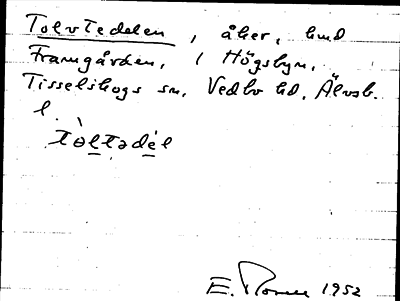 Tolvtedelen, åker, hmd
Framgården, i Högsbyn,
Tisselskogs sn, Vedbo hd, Älvsb.
l.
tòltadél
E. 1952